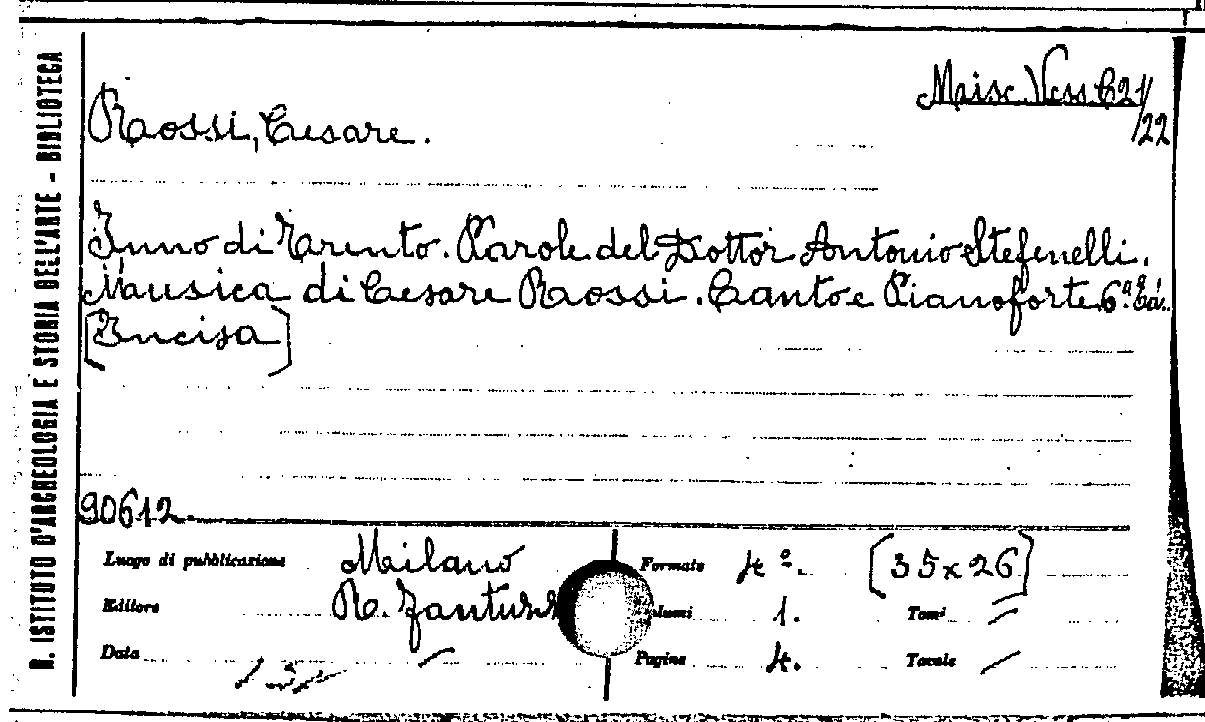 R. ISTITUTO D'ARCHEOLOGIA E STORIA DELL'ARTE - BIBLIOTECA
Misc. Vess. C21/22
Rossi, Cesare.
Inno di Trento. Parole del Dottor Antonio Stefenelli.
Musica di Cesare Rossi. Canto e Pianoforte. 6ª Ed.
[Incisa]
90612.
Luogo di pubblicazione Milano Formato 4º. [35x26]
Editore R. Fantuzz Volumi 1. Tomi —
Data — Pagine 4. Tavole —